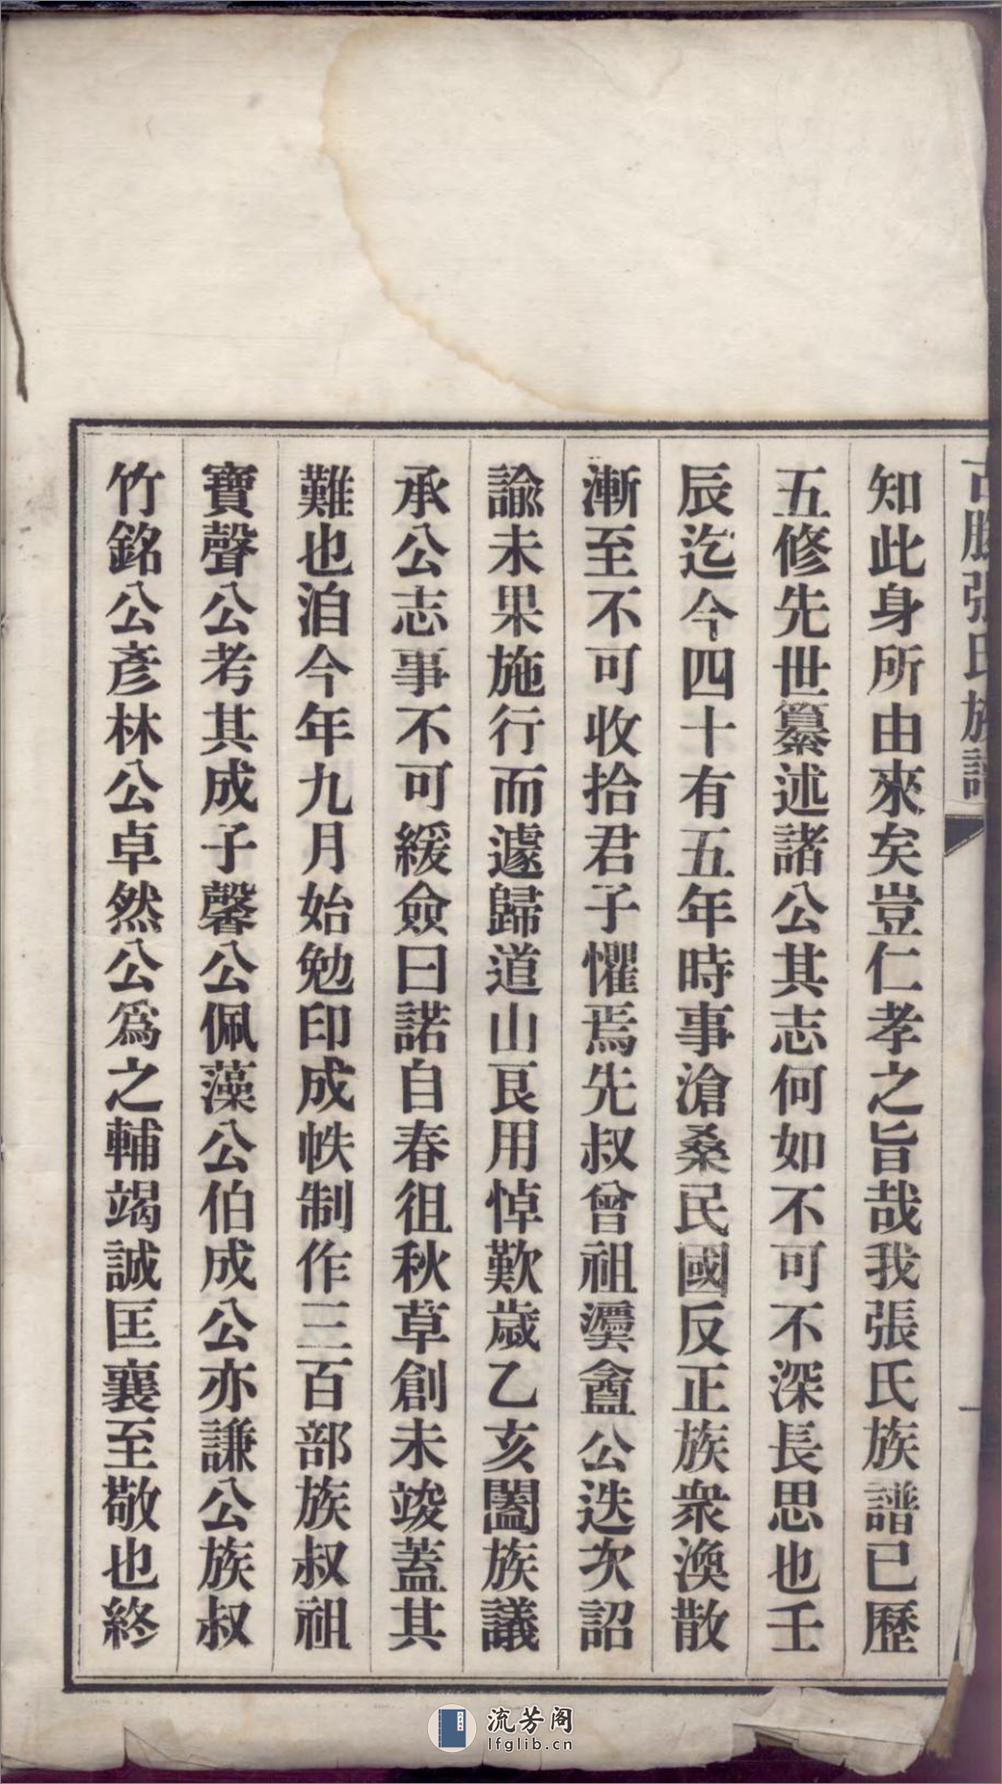 古滕張氏族譜
知此身所由來矣豈仁孝之旨哉我張氏族譜已歷
五修先世纂述諸公其志何如不可不深長思也壬
辰迄今四十有五年時事滄桑民國反正族衆渙散
漸至不可收拾君子懼焉先叔曾祖瀵龕公迭次詔
諭未果施行而遽歸道山良用悼歎歲乙亥闔族議
承公志事不可緩僉曰諾自春徂秋草創未竣蓋其
難也洎今年九月始勉印成帙制作三百部族叔祖
寶聲公考其成子馨公佩藻公伯成公亦謙公族叔
竹銘公彥林公卓然公爲之輔竭誠匡襄至敬也終
流芳阁
lfglib.cn